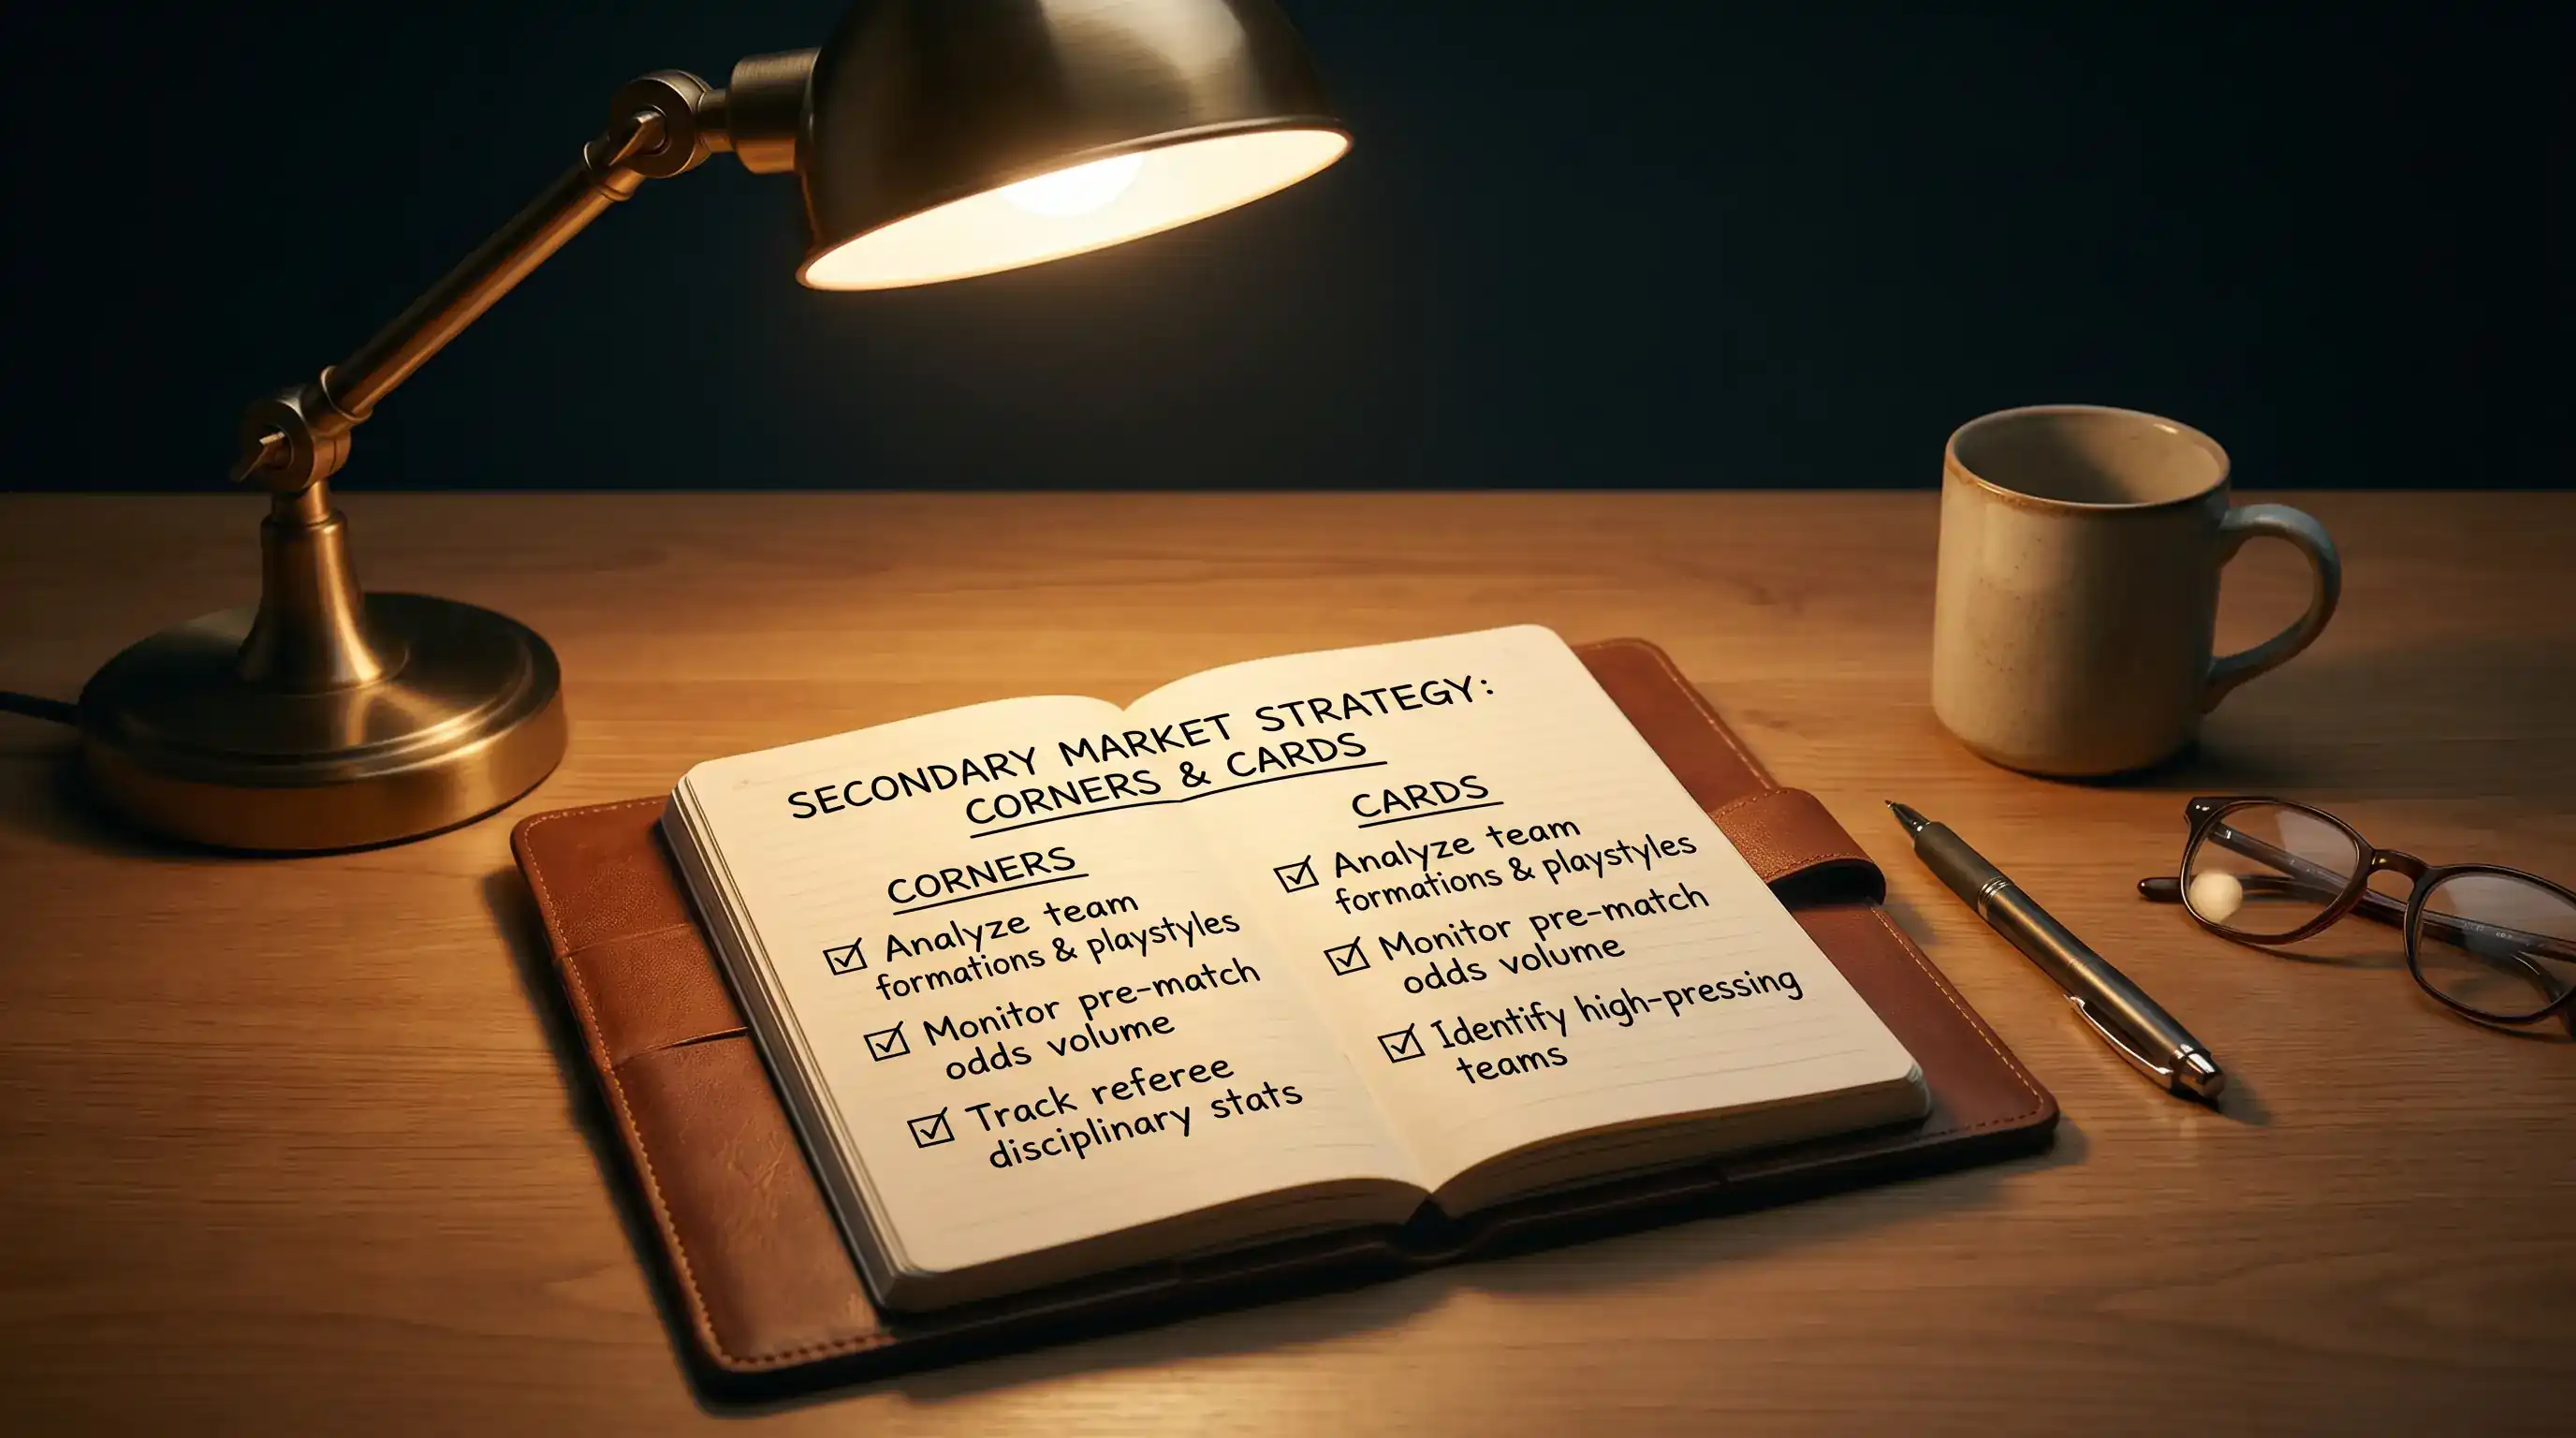 SECONDARY MARKET STRATEGY:
CORNERS & CARDS
CORNERS
☑ Analyze team
formations & playstyles
☑ Monitor pre-match
odds volume
☑ Track referee
disciplinary stats
CARDS
☑ Analyze team
formations & playstyles
☑ Monitor pre-match
odds volume
☑ Identify high-pressing
teams